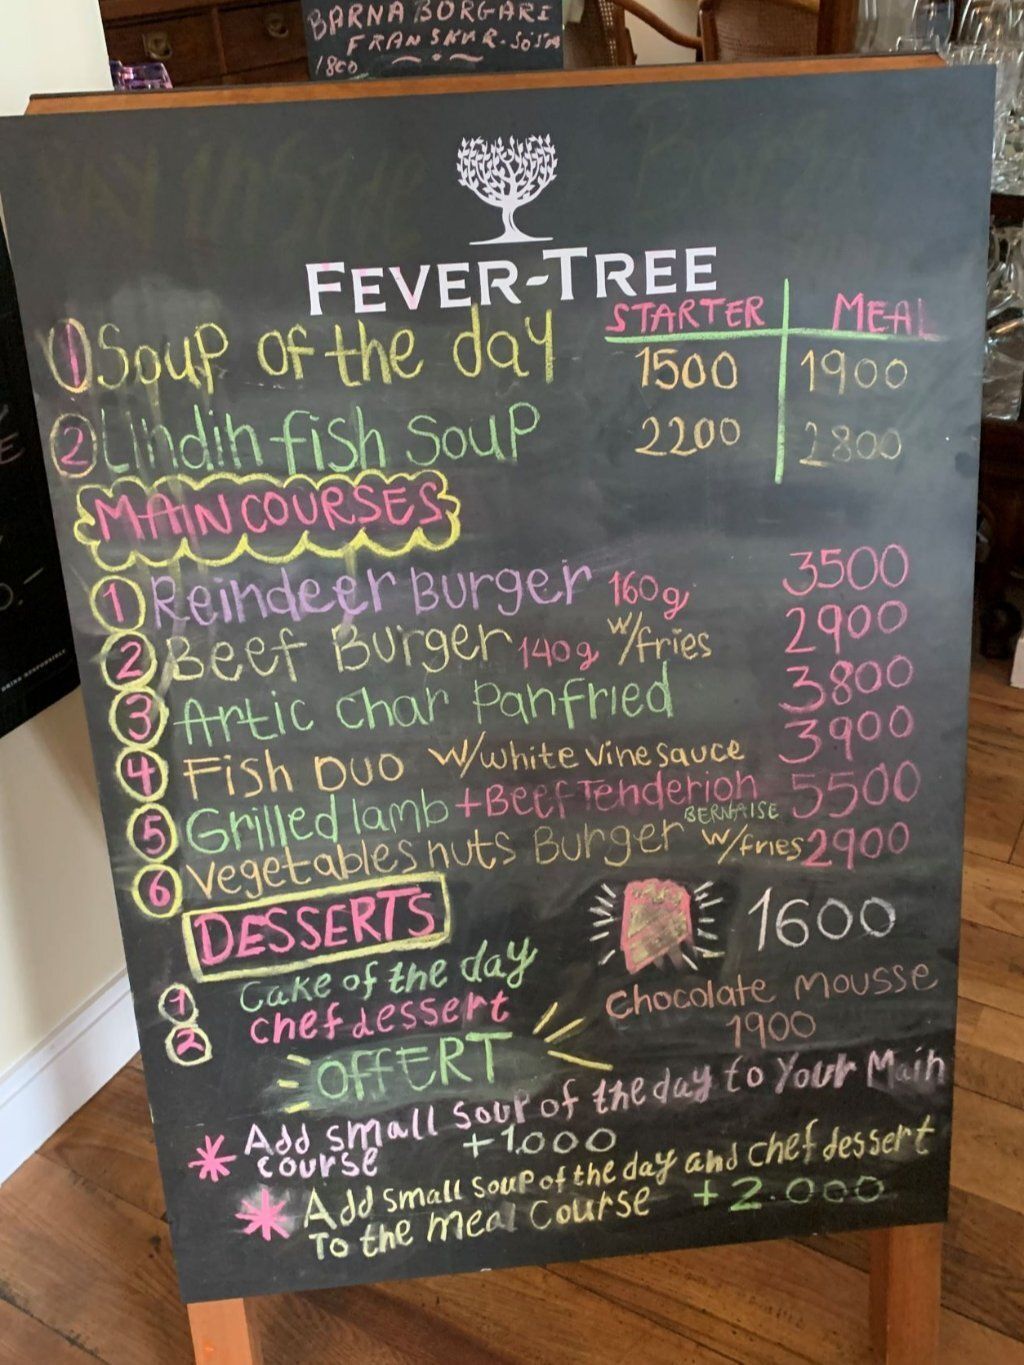 BARNA BORGARI
FRANSKAR-SÓSA
1800
FEVER-TREE
STARTER MEAL
1 Soup of the day 1500 1900
2 Lindin fish Soup 2200 2800
MAIN COURSES
1 Reindeer Burger 160g 3500
2 Beef Burger 140g w/fries 2900
3 Artic Char Panfried 3800
4 Fish Duo w/white vine sauce 3900
5 Grilled lamb + Beef Tenderion 5500
BERNAISE
6 Vegetables nuts Burger w/fries 2900
DESSERTS
1600
1 Cake of the day
2 chef dessert
Chocolate Mousse
1900
OFFERT
* Add small soup of the day to Your Main
course +1.000
* Add small soup of the day and chef dessert
To the meal Course +2.000
DRINK RESPONSIBLY